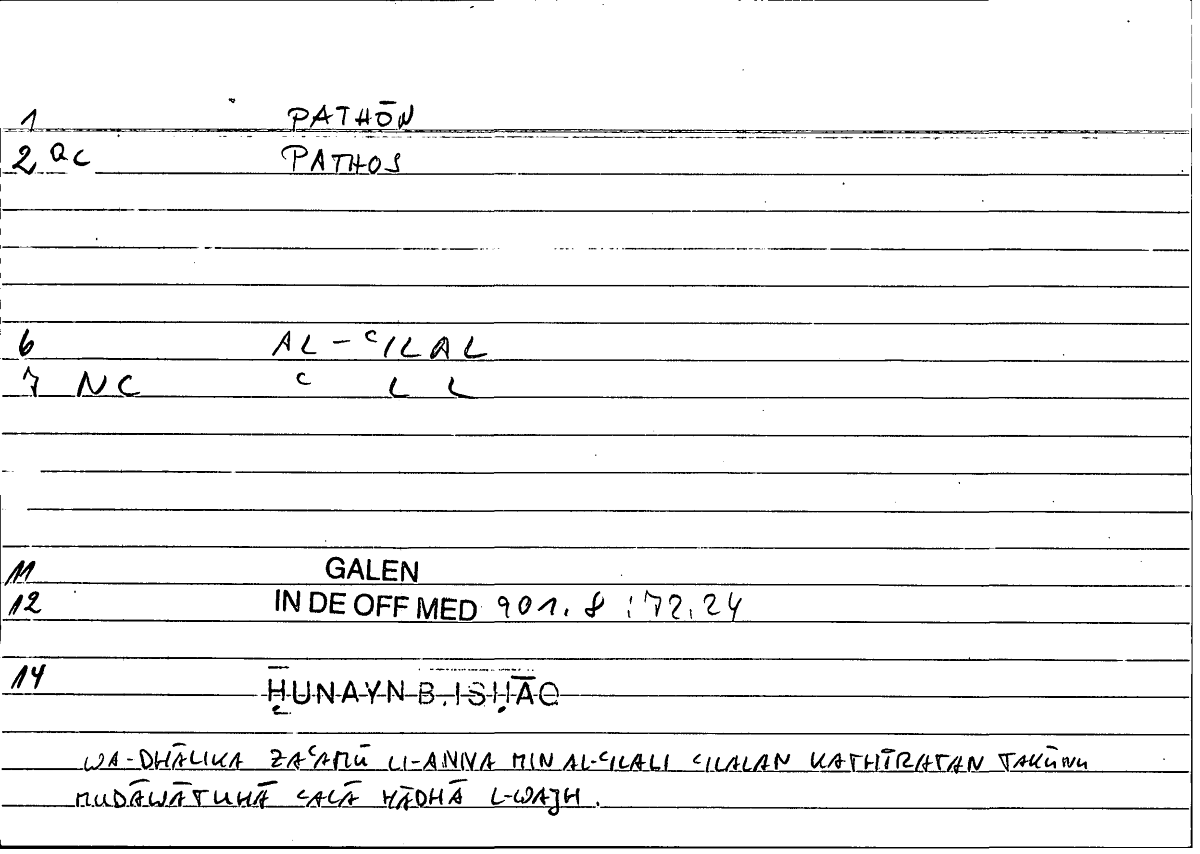 1 PATHŌN
2 QC PATHOS
6 AL-ʿILAL
7 NC ʿ L L
11 GALEN
12 IN DE OFF MED 901.8 : 72.24
14 ḤUNAYN B. ISḤĀQ
WA-DHĀLIKA ZAʿAMŪ LI-ANNA MIN AL-ʿILALI ʿILALAN KATHĪRATAN TAKŪNU
MUDĀWĀTUHĀ ʿALĀ HĀDHĀ L-WAJH.